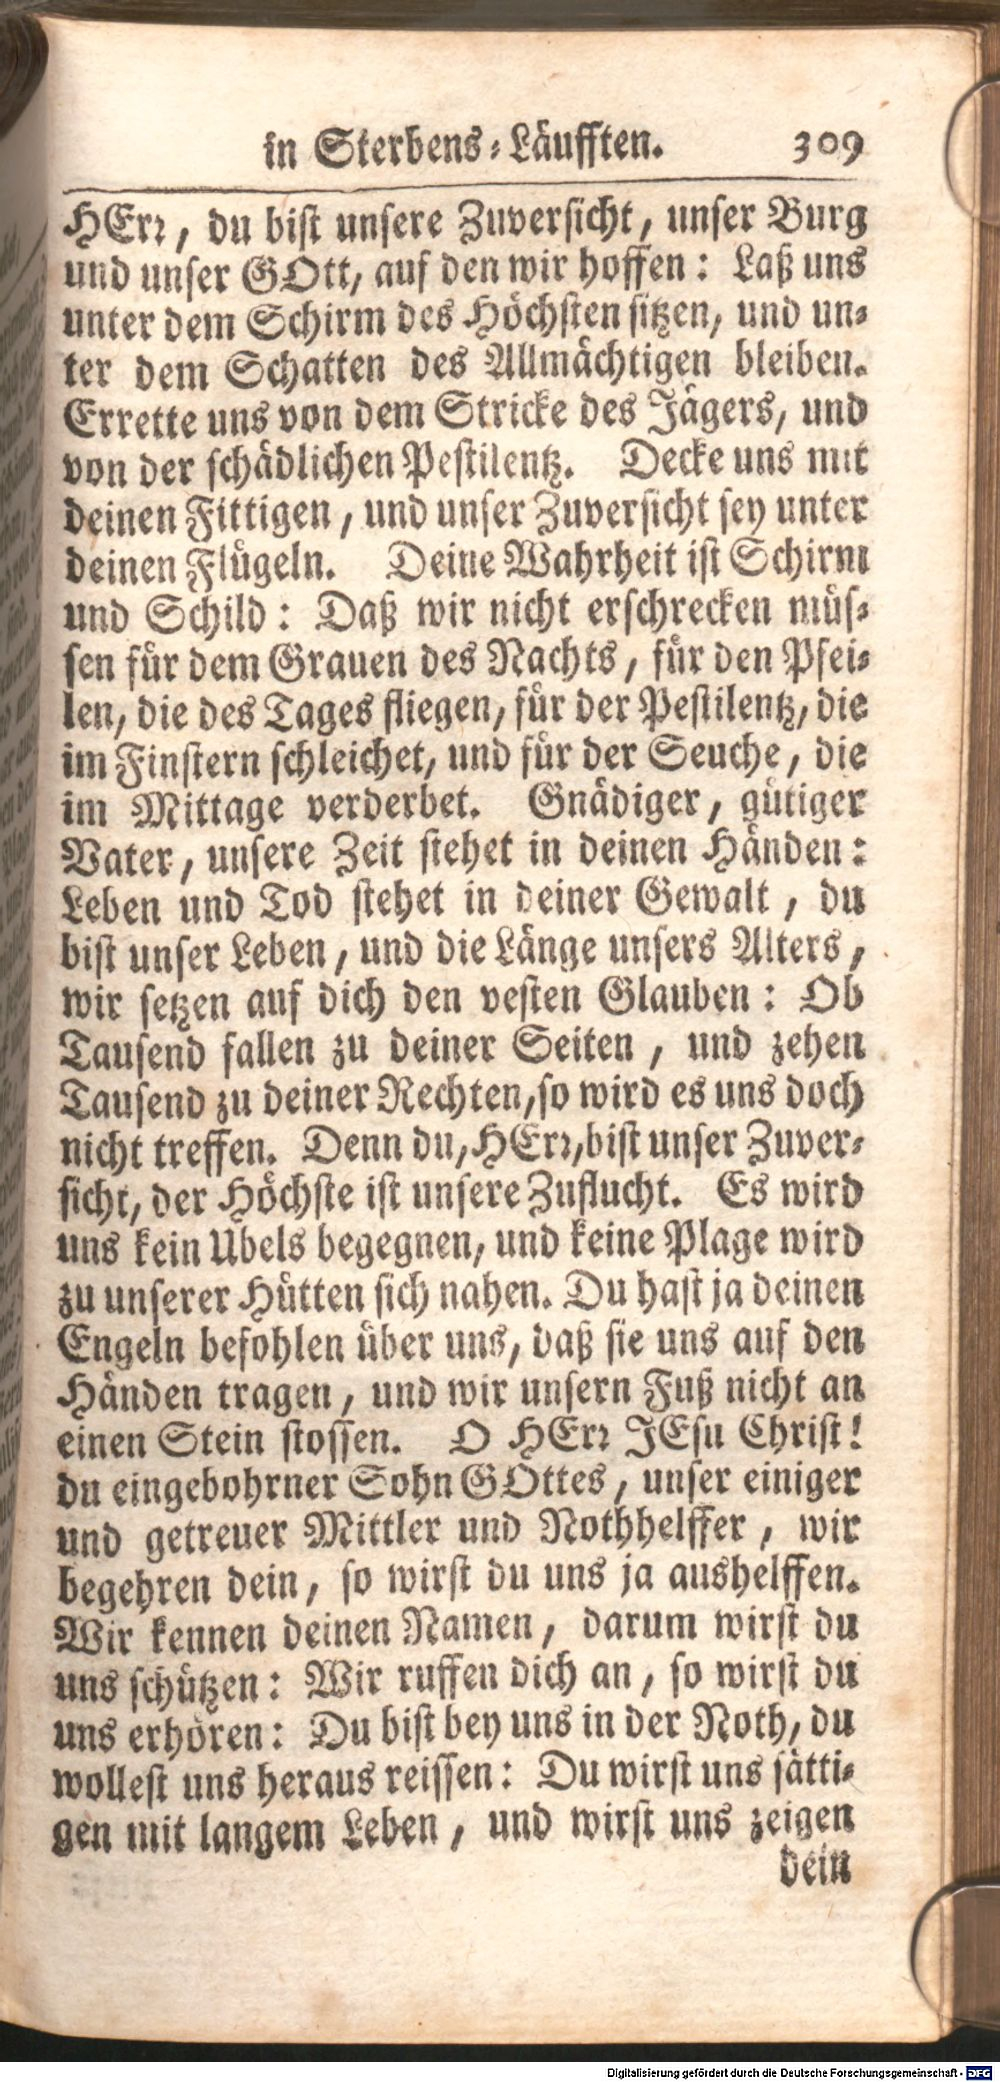 in Sterbens-Läufften. 309
HErr, du bist unsere Zuversicht, unser Burg
und unser GOtt, auf den wir hoffen: Laß uns
unter dem Schirm des Höchsten sitzen, und un-
ter dem Schatten des Allmächtigen bleiben.
Errette uns von dem Stricke des Jägers, und
von der schädlichen Pestilentz. Decke uns mit
deinen Fittigen, und unser Zuversicht sey unter
deinen Flügeln. Deine Wahrheit ist Schirm
und Schild: Daß wir nicht erschrecken müs-
sen für dem Grauen des Nachts, für den Pfei-
len, die des Tages fliegen, für der Pestilentz, die
im Finstern schleichet, und für der Seuche, die
im Mittage verderbet. Gnädiger, gütiger
Vater, unsere Zeit stehet in deinen Händen:
Leben und Tod stehet in deiner Gewalt, du
bist unser Leben, und die Länge unsers Alters,
wir setzen auf dich den vesten Glauben: Ob
Tausend fallen zu deiner Seiten, und zehen
Tausend zu deiner Rechten, so wird es uns doch
nicht treffen. Denn du, HErr, bist unser Zuver-
sicht, der Höchste ist unsere Zuflucht. Es wird
uns kein Ubels begegnen, und keine Plage wird
zu unserer Hütten sich nahen. Du hast ja deinen
Engeln befohlen über uns, daß sie uns auf den
Händen tragen, und wir unsern Fuß nicht an
einen Stein stossen. O HErr JEsu Christ!
du eingebohrner Sohn GOttes, unser einiger
und getreuer Mittler und Nothhelffer, wir
begehren dein, so wirst du uns ja aushelffen.
Wir kennen deinen Namen, darum wirst du
uns schützen: Wir ruffen dich an, so wirst du
uns erhören: Du bist bey uns in der Noth, du
wollest uns heraus reissen: Du wirst uns sätti-
gen mit langem Leben, und wirst uns zeigen
dein
Digitalisierung gefördert durch die Deutsche Forschungsgemeinschaft - DFG